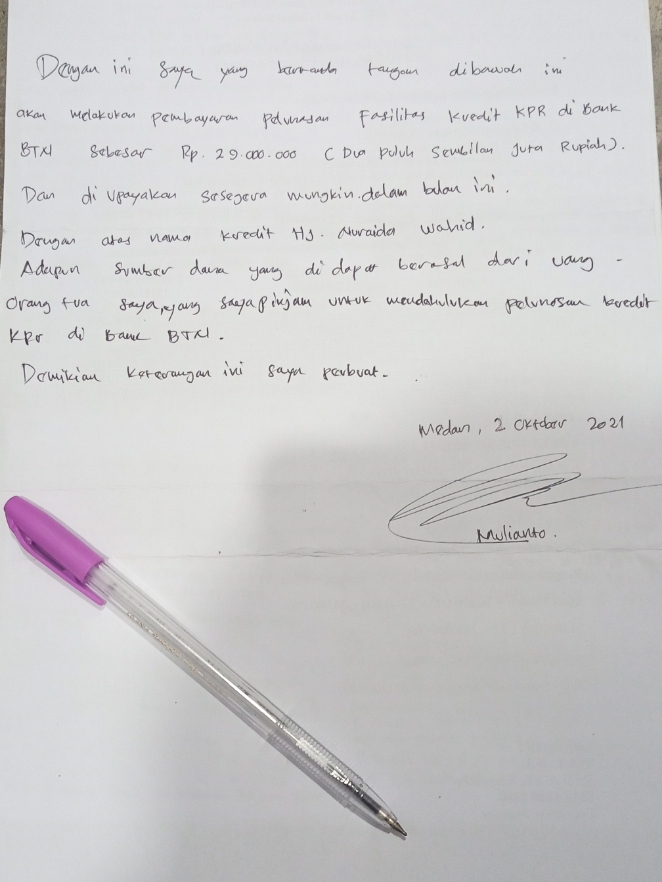 Dengan ini saya yang bertanda tangan dibawah ini
akan melakukan pembayaran pelunasan Fasilitas kredit KPR di Bank
BTN Sebesar Rp. 29.000.000 (Dua puluh Sembilan Juta Rupiah).
Dan di upayakan sesegera mungkin dalam bulan ini.
Dengan atas nama kredit Hj. Nuraida Wahid.
Adapun Sumber dana yang di dapat berasal dari uang -
Orang tua saya, yang saya pinjam untuk mendahulukan pelunasan kredit
KPR di Bank BTN.
Demikian keterangan ini saya perbuat.
Medan, 2 Oktober 2021
Mulianto.